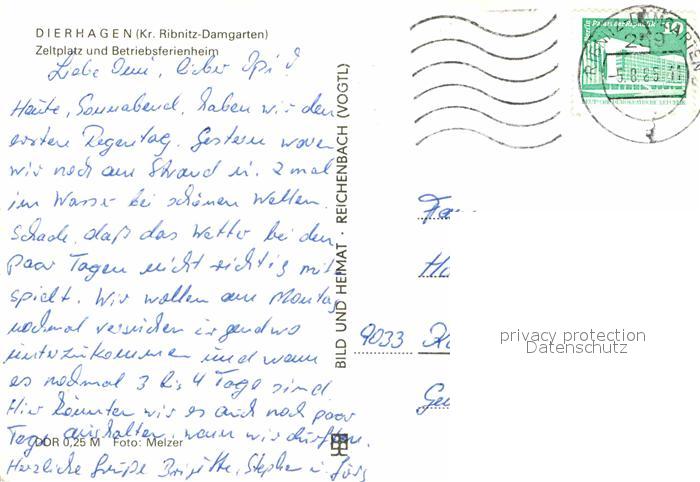 DIERHAGEN (Kr. Ribnitz-Damgarten)
Zeltplatz und Betriebsferienheim
Liebe Omi, lieber Opi!
Heute, Sonnabend, haben wir den
ersten Regentag. Gestern waren
wir noch am Strand u. 2 mal
im Wasser bei schönen Wellen.
Schade, daß das Wetter bei den
paar Tagen nicht richtig mit-
spielt. Wir wollen am Montag
nochmal versuchen irgendwo
unterzukommen und wenn
es nochmal 3 bis 4 Tage sind.
Hier könnten wir es auch noch paar
Tage aushalten, wenn wir dürften.
Herzliche Grüße Brigitte, Stephan u. Jörg
DDR 0,25 M Foto: Melzer
BILD UND HEIMAT · REICHENBACH (VOGTL)
Palast der Republik
10
DEUTSCHE DEMOKRATISCHE REPUBLIK
259
-5.8.85
Fa
Ha
9033 K
Ge
privacy protection
Datenschutz